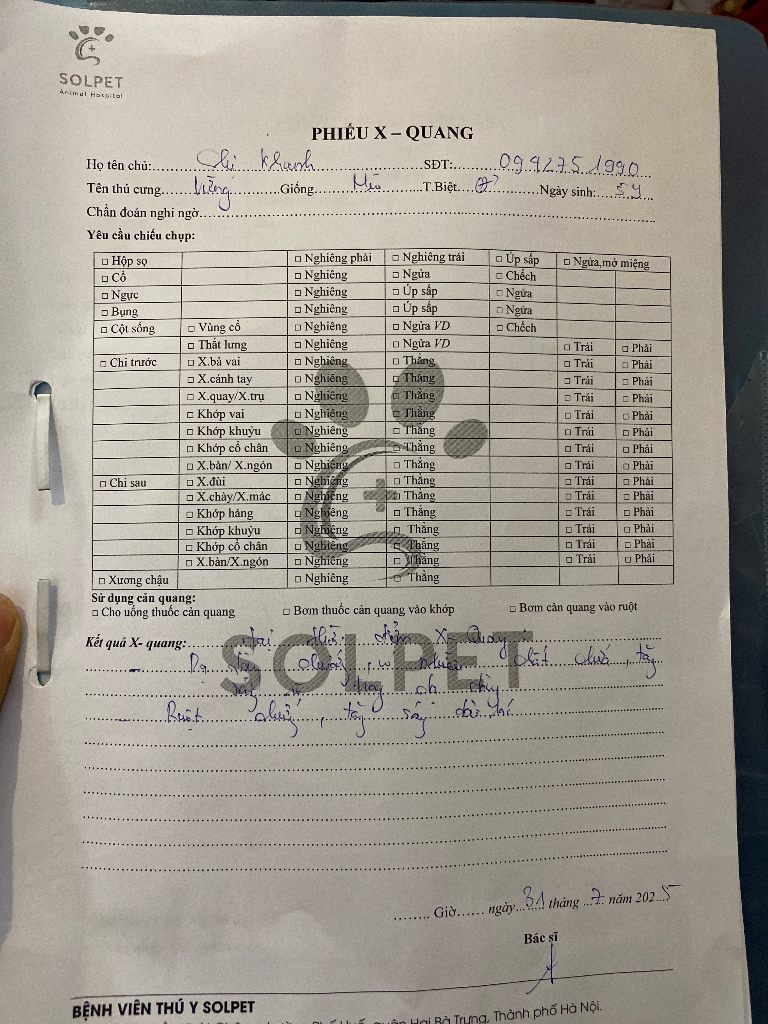 SOLPET
Animal Hospital
PHIẾU X – QUANG
Họ tên chủ: Chị Khanh SĐT: 0942751990
Tên thú cưng Giống Mèo T.Biệt Ngày sinh: 5Y
Chẩn đoán nghi ngờ
Yêu cầu chiếu chụp:
□ Hộp sọ □ Nghiêng phải □ Nghiêng trái □ Úp sấp □ Ngửa,mở miệng
□ Cổ □ Nghiêng □ Ngửa □ Chếch
□ Ngực □ Nghiêng □ Úp sấp □ Ngửa
□ Bụng □ Nghiêng □ Úp sấp □ Ngửa
□ Cột sống □ Vùng cổ □ Nghiêng □ Ngửa VD □ Chếch
□ Thắt lưng □ Nghiêng □ Ngửa VD □ Trái □ Phải
□ Chi trước □ X.bả vai □ Nghiêng □ Thẳng □ Trái □ Phải
□ X.cánh tay □ Nghiêng □ Thẳng □ Trái □ Phải
□ X.quay/X.trụ □ Nghiêng □ Thẳng □ Trái □ Phải
□ Khớp vai □ Nghiêng □ Thẳng □ Trái □ Phải
□ Khớp khuỷu □ Nghiêng □ Thẳng □ Trái □ Phải
□ Khớp cổ chân □ Nghiêng □ Thẳng □ Trái □ Phải
□ X.bàn/ X.ngón □ Nghiêng □ Thẳng □ Trái □ Phải
□ Chi sau □ X.đùi □ Nghiêng □ Thẳng □ Trái □ Phải
□ X.chày/X.mác □ Nghiêng □ Thẳng □ Trái □ Phải
□ Khớp háng □ Nghiêng □ Thẳng □ Trái □ Phải
□ Khớp khuỷu □ Nghiêng □ Thẳng □ Trái □ Phải
□ Khớp cổ chân □ Nghiêng □ Thẳng □ Trái □ Phải
□ X.bàn/X.ngón □ Nghiêng □ Thẳng □ Trái □ Phải
□ Xương chậu □ Nghiêng □ Thẳng
Sử dụng cản quang:
□ Cho uống thuốc cản quang □ Bơm thuốc cản quang vào khớp □ Bơm cản quang vào ruột
Kết quả X- quang: Tại thời điểm X-Quang
SOLPET
- Dạ dày chứa, chất chứa, tăng
- Ruột chứa, tăng
Giờ ngày 31 tháng 7 năm 2025
Bác sĩ
BỆNH VIỆN THÚ Y SOLPET
Phố Huế, quận Hai Bà Trưng, Thành phố Hà Nội.